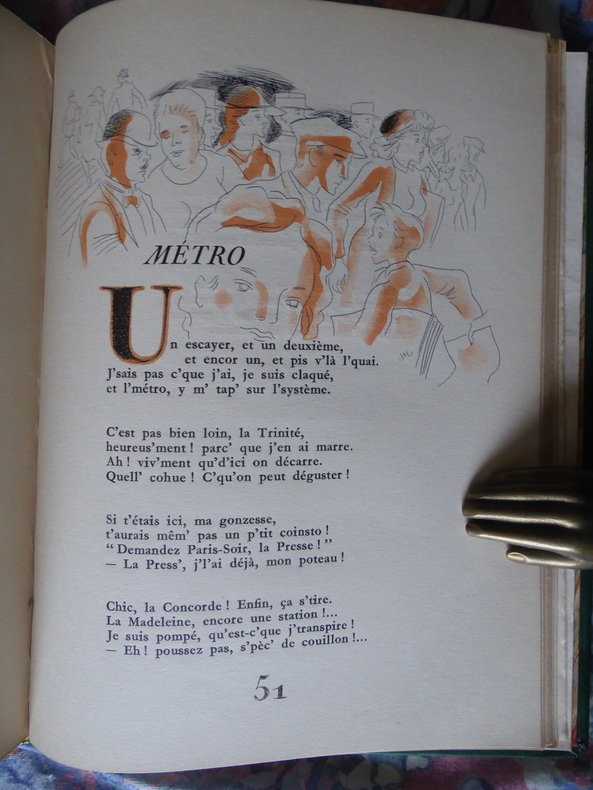 MÉTRO
Un escayer, et un deuxième,
et encor un, et pis v'là l'quai.
J'sais pas c'que j'ai, je suis claqué,
et l'métro, y m' tap' sur l'système.
C'est pas bien loin, la Trinité,
heureus'ment ! parc' que j'en ai marre.
Ah ! viv'ment qu'd'ici on décarre.
Quell' cohue ! C'qu'on peut déguster !
Si t'étais ici, ma gonzesse,
t'aurais mêm' pas un p'tit coinsto !
“ Demandez Paris-Soir, la Presse ! ”
— La Press', j'l'ai déjà, mon poteau !
Chic, la Concorde ! Enfin, ça s'tire.
La Madeleine, encore une station !...
Je suis pompé, qu'est-c'que j'transpire !
— Eh ! poussez pas, s'pèc' de couillon !...
51